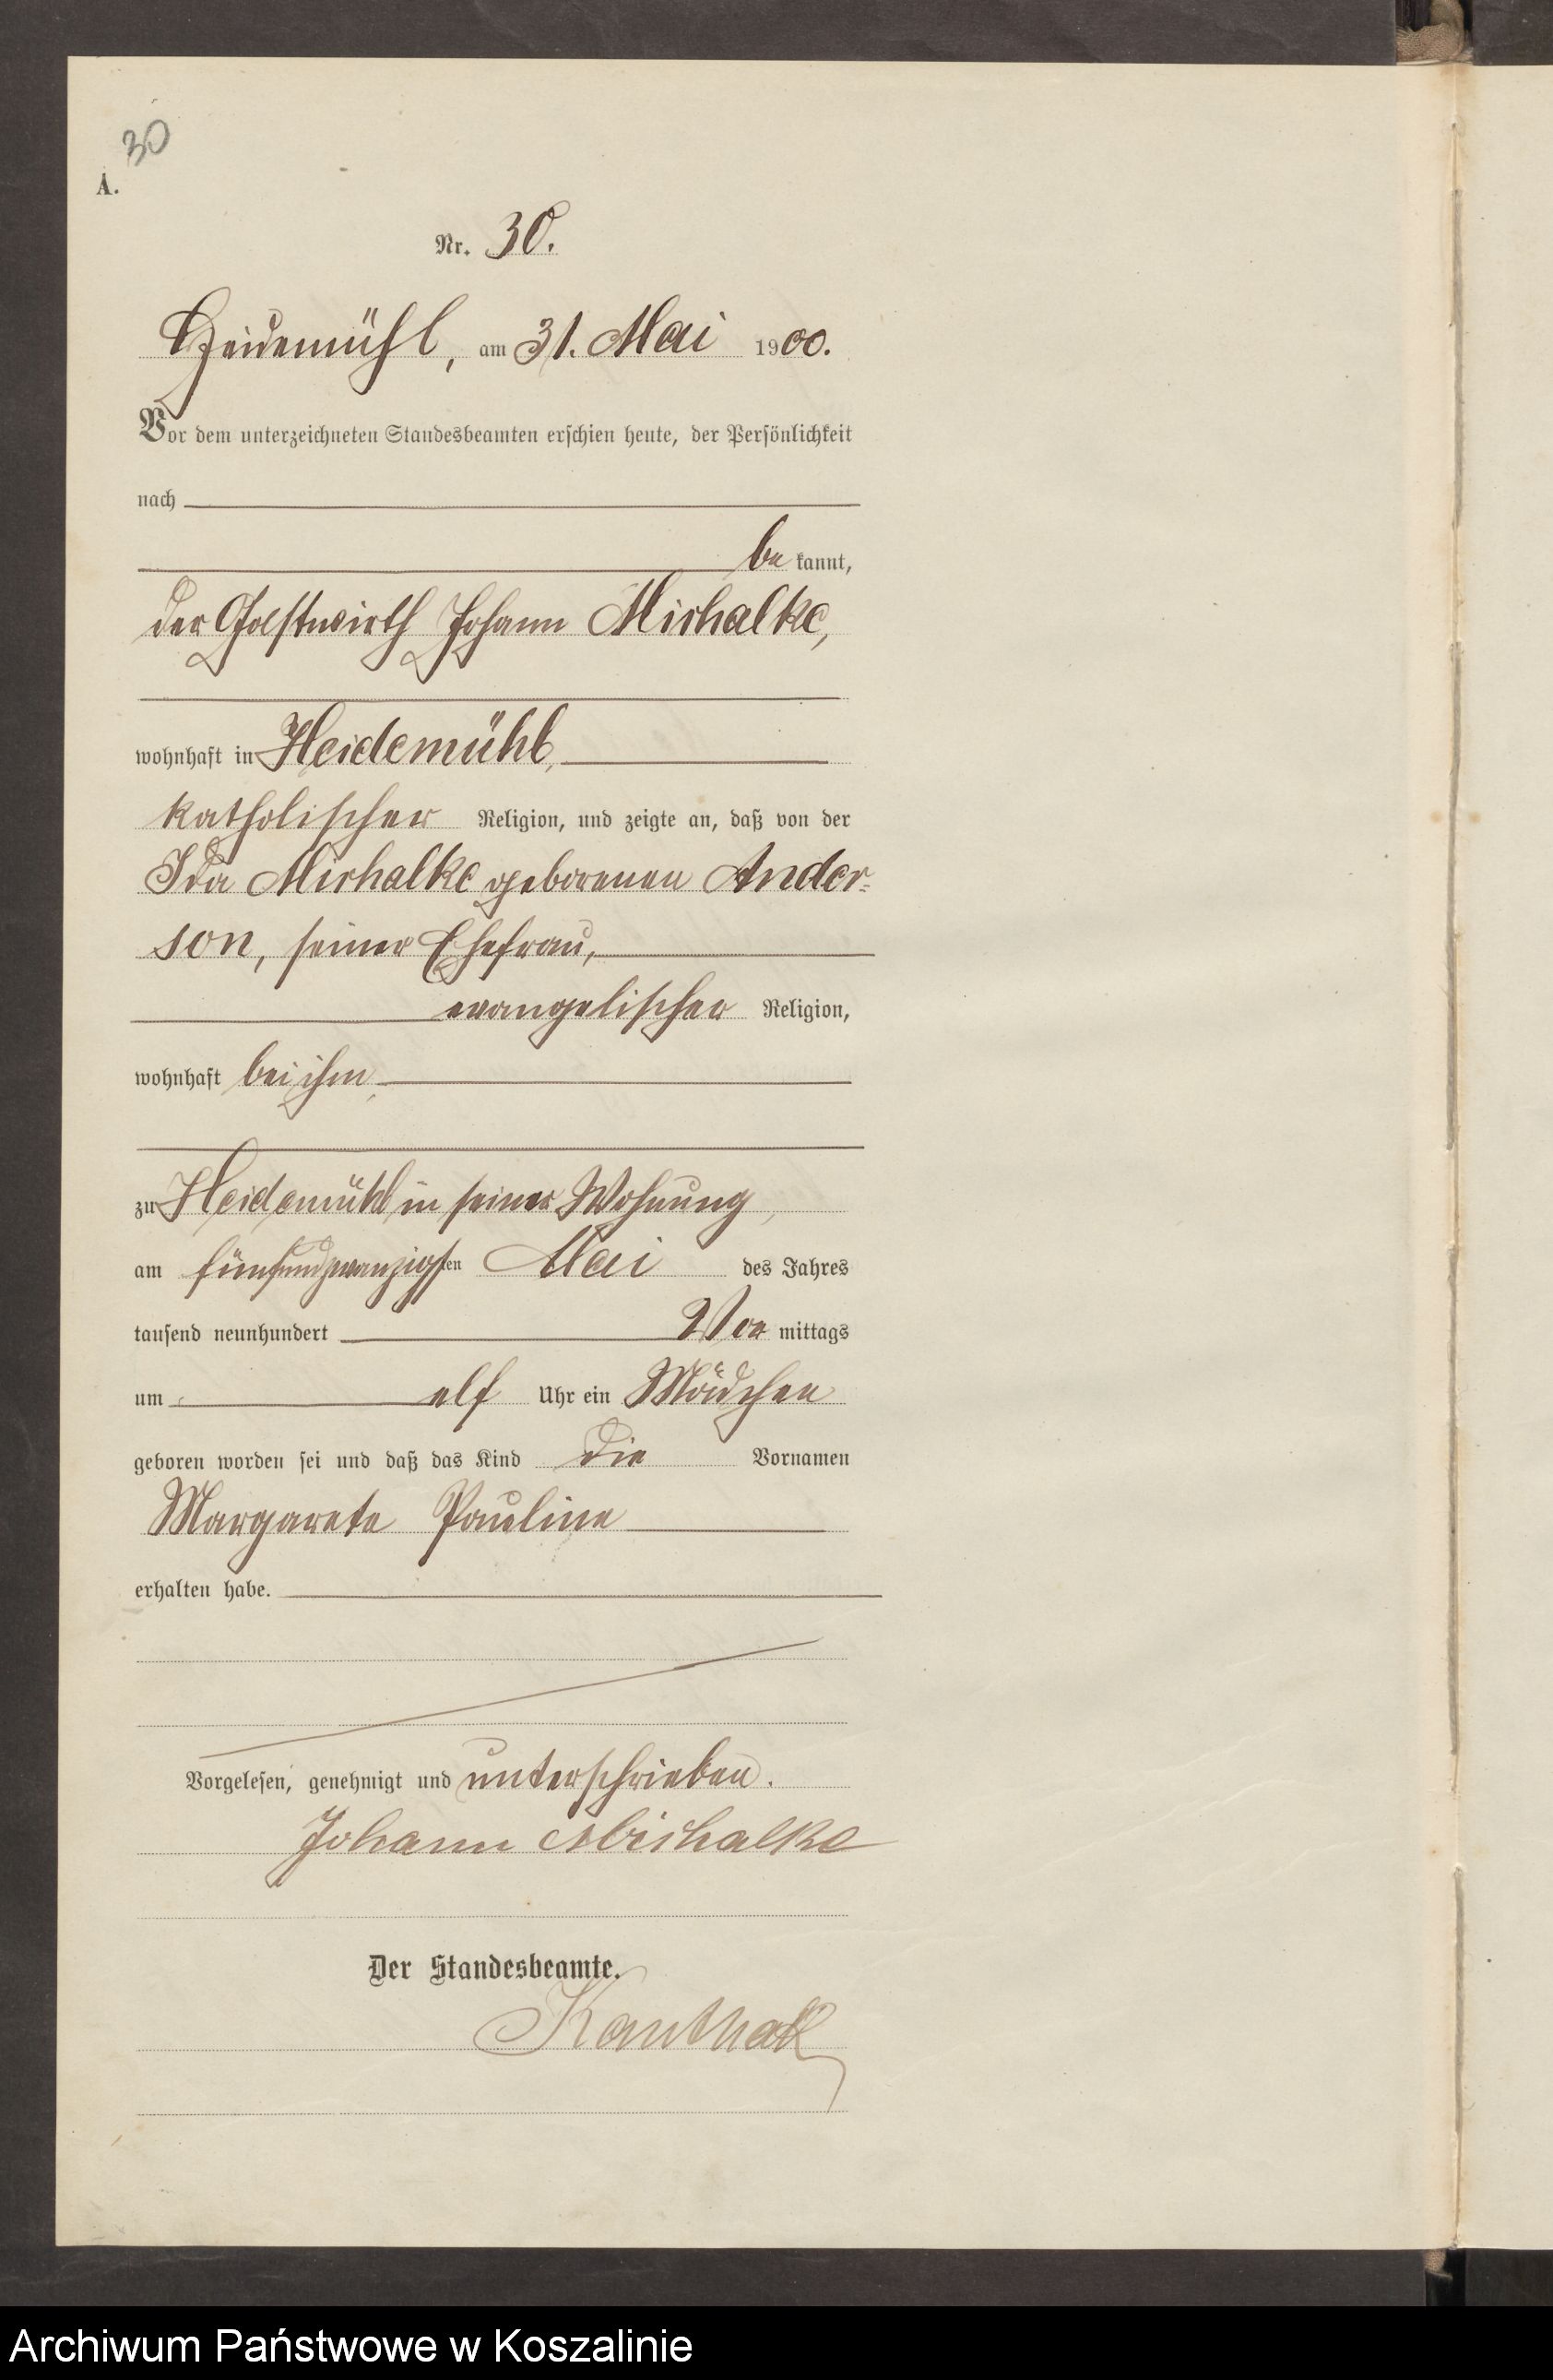 30
A.
Nr. 30.
Heidemühl, am 31. Mai 1900.
Vor dem unterzeichneten Standesbeamten erschien heute, der Persönlichkeit
nach
be kannt,
der Gastwirth Johann Mischalke,
wohnhaft in Heidemühl,
katholischer Religion, und zeigte an, daß von der
Ida Mischalke geborenen Ander-
son, seiner Ehefrau,
evangelischer Religion,
wohnhaft bei ihm,
zu Heidemühl in seiner Wohnung,
am fünfundzwanzigsten Mai des Jahres
tausend neunhundert Vor mittags
um elf Uhr ein Mädchen
geboren worden sei und daß das Kind die Vornamen
Margarete Pauline
erhalten habe.
Vorgelesen, genehmigt und unterschrieben.
Johann Mischalke
Der Standesbeamte.
Kanthak
Archiwum Państwowe w Koszalinie